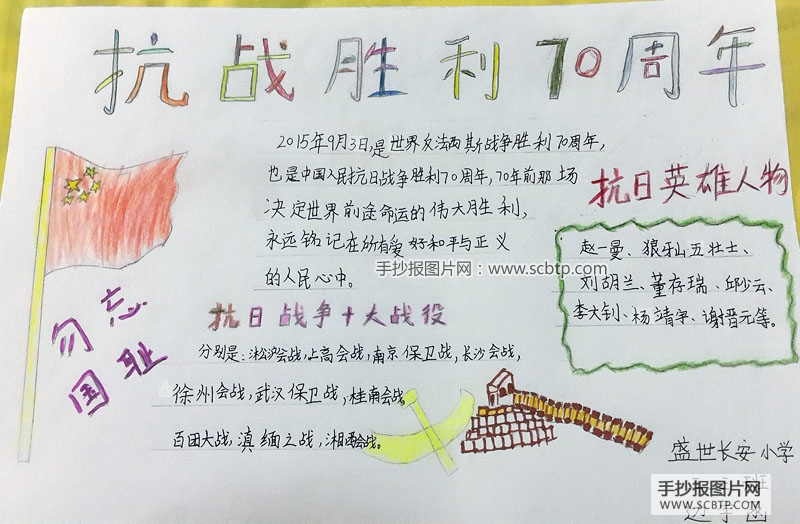 抗战胜利70周年
2015年9月3日,是世界反法西斯战争胜利70周年,
也是中国人民抗日战争胜利70周年,70年前那场
决定世界前途命运的伟大胜利,
永远铭记在所有爱好和平与正义
的人民心中。
手抄报图片网：www.scbtp.com
勿忘
国耻
抗日英雄人物
赵一曼、狼牙山五壮士、
刘胡兰、董存瑞、邱少云、
李大钊、杨靖宇、谢晋元等。
抗日战争十大战役
分别是:淞沪会战,上高会战,南京保卫战,长沙会战,
徐州会战,武汉保卫战,桂南会战,
百团大战,滇缅之战,湘西会战。
盛世长安小学
班
手抄报图片网
WWW.SCBTP.COM